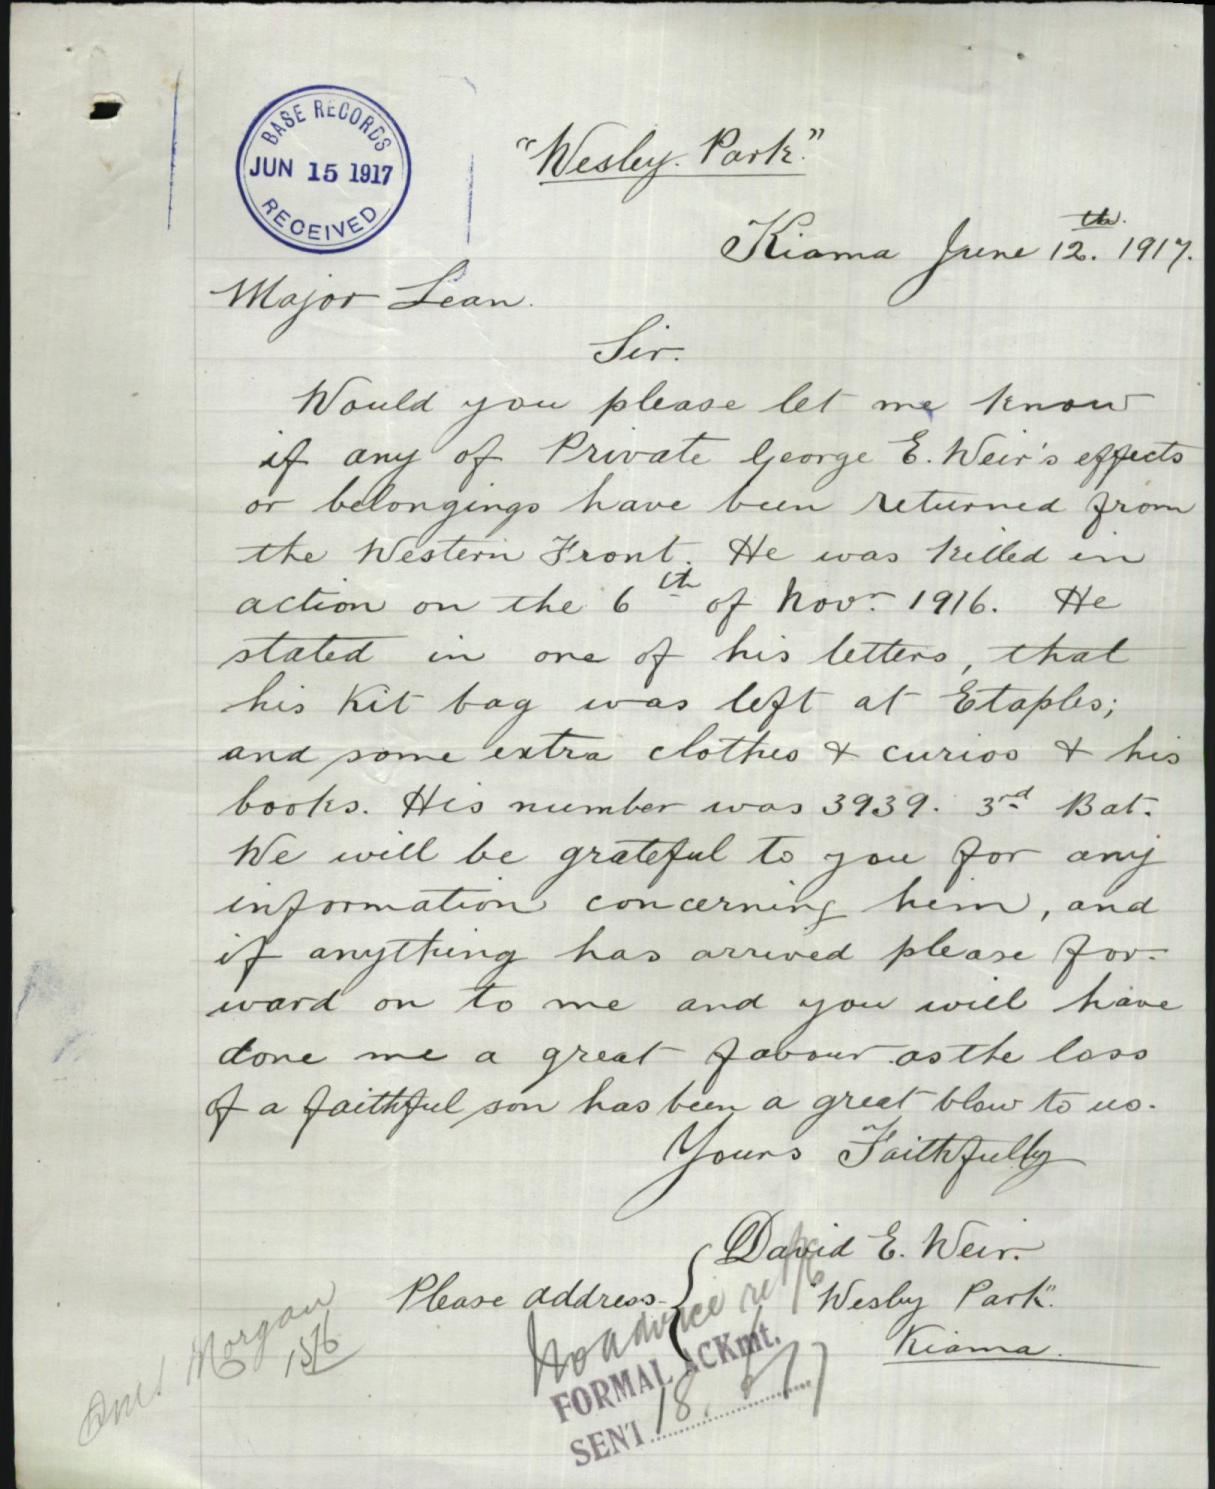 BASE RECORDS
JUN 15 1917
RECEIVED
"Wesley. Park."
Kiama June 12.th 1917.
Major Lean.
Sir.
Would you please let me know
if any of Private George E. Weir's effects
or belongings have been returned from
the Western Front. He was killed in
action on the 6th of Novr. 1916. He
stated in one of his letters, that
his kit bag was left at Etaples;
and some extra clothes & curios & his
books. His number was 3939. 3rd Bat.
We will be grateful to you for any
information concerning him, and
if anything has arrived please for-
ward on to me and you will have
done me a great favour as the loss
of a faithful son has been a great blow to us.
Yours Faithfully
David E. Weir.
Please address "Wesley Park".
Kiama.
No advice re
FORMAL ACKmt.
SENT 18.6.17
Morgan
15/6